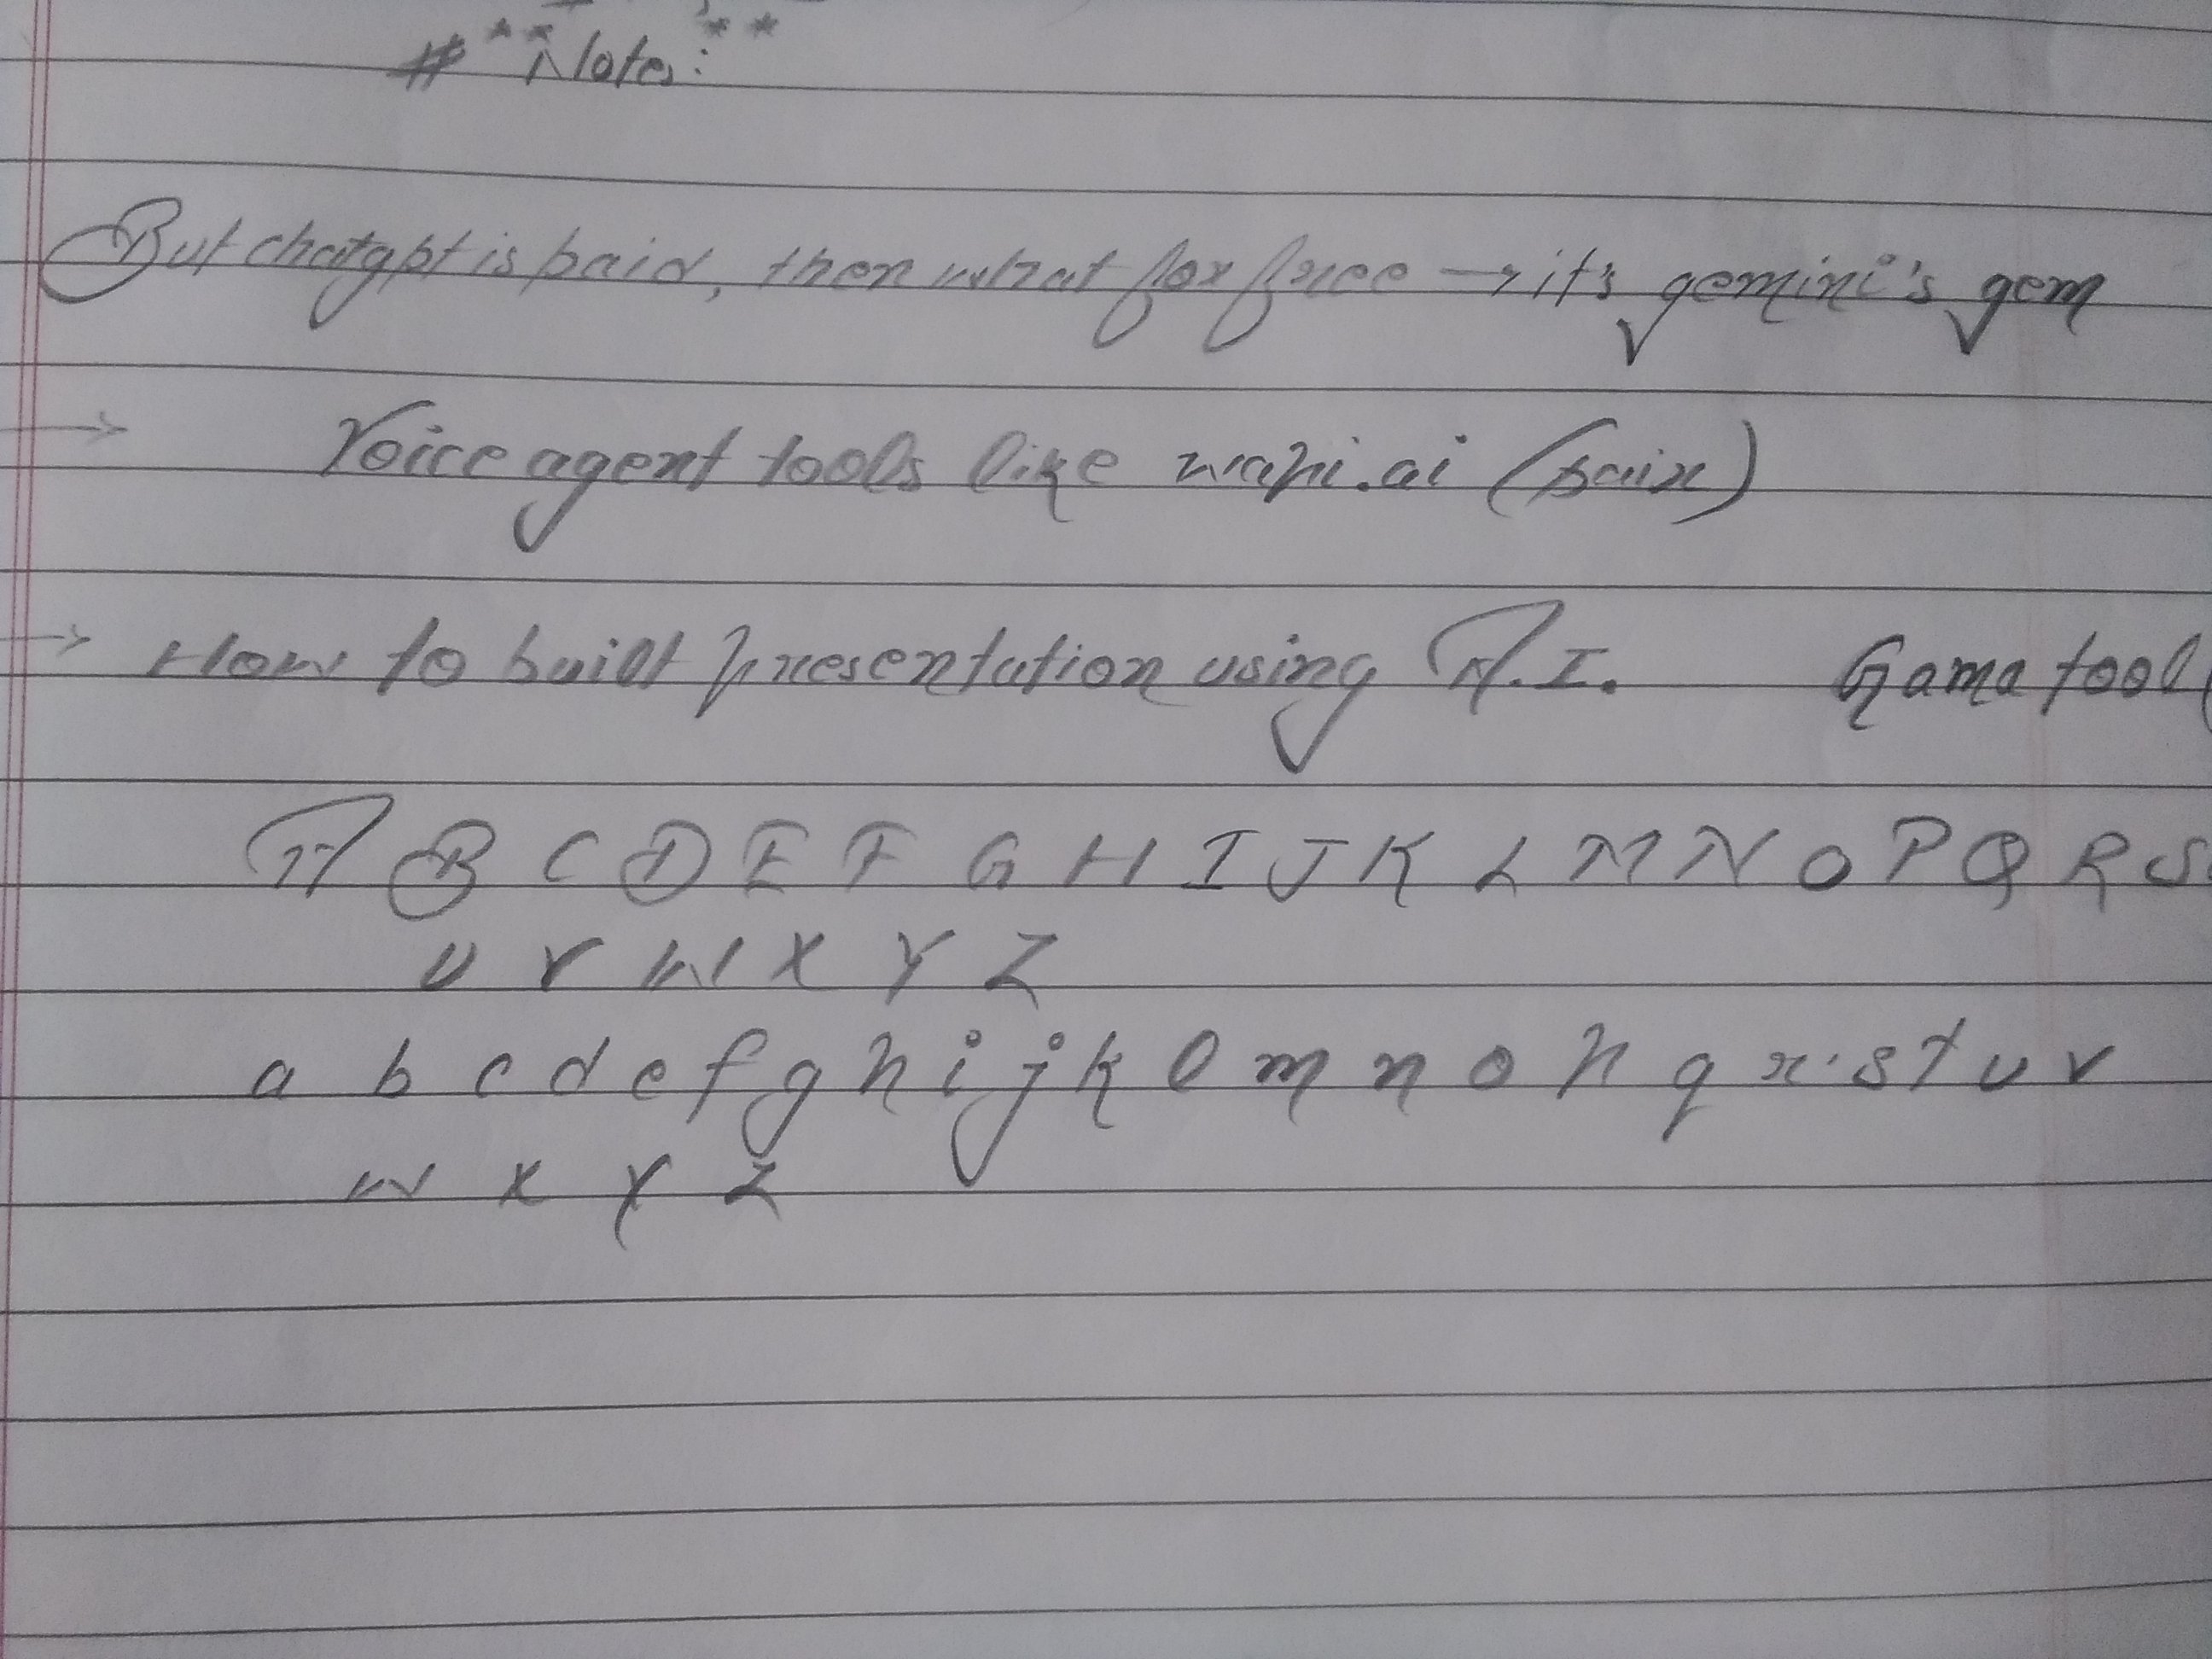 # **Note:**
But chatgpt is paid, then what for free → it's gemini's gem
→ Voice agent tools like wapi.ai (paid)
→ How to built presentation using A.I. Gama tool (
A B C D E F G H I J K L M N O P Q R S
U V W X Y Z
a b c d e f g h i j k l m n o p q r s t u v
w x y z